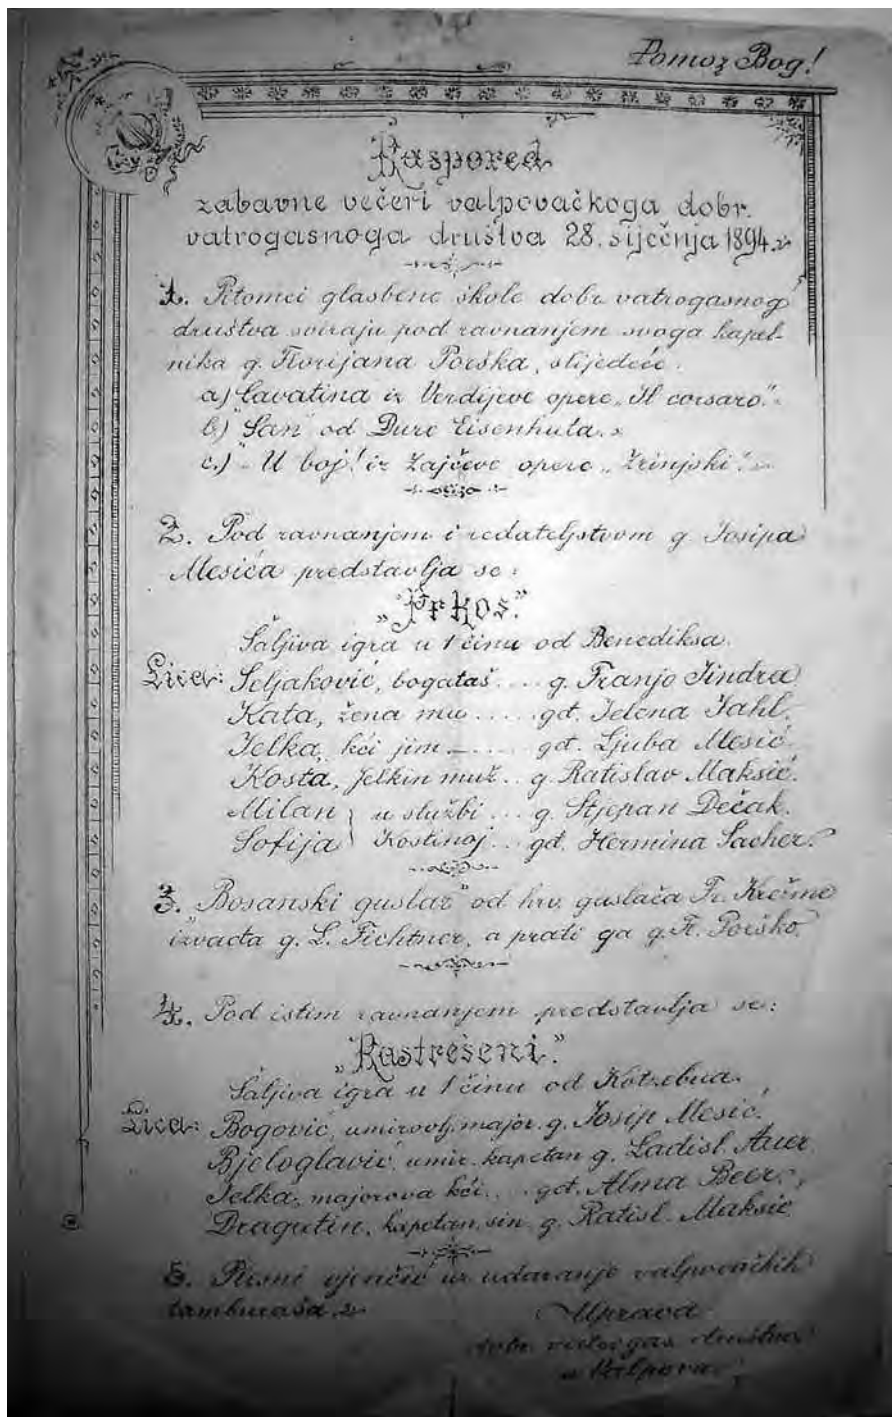 Pomoz Bog!
Raspored
zabavne večeri valpovačkoga dobr.
vatrogasnoga društva 28. siječnja 1894.
1. Pitomci glasbene škole dobr. vatrogasnog
društva sviraju pod ravnanjem svoga kapel-
nika g. Florijana Porška, slijedeće:
a) Cavatina iz Verdijeve opere „Il corsaro".
b) "San" od Đure Eisenhuta.
c.) „U boj! iz Zajčeve opere „Zrinjski".
2. Pod ravnanjem i redateljstvom g. Josipa
Mesića predstavlja se:
„Prkos."
Šaljiva igra u 1 činu od Benediksa.
Lica: Seljaković, bogataš.... g. Franjo Jindra
Kata, žena mu..... gđ. Jelena Jahl.
Jelka, kći jim ...... gđ. Ljuba Mesić.
Kosta, Jelkin muž.. g. Ratislav Maksić.
Milan } u službi... g. Stjepan Dečak.
Sofija } Kostinoj... gđ. Hermina Sacher.
3. „Bosanski guslar" od hrv. guslača Fr. Krežme
izvađa g. L. Fichtner, a prati ga g. Fl. Porško.
4. Pod istim ravnanjem predstavlja se:
„Rastrešeni."
Šaljiva igra u 1 činu od Kotzebua.
Lica: Bogović, umirovlj. major. g. Josip Mesić.
Bjeloglavić, umir. kapetan g. Ladisl. Auer.
Jelka, majorova kći... gđ. Alma Beer.
Dragutin, kapetan. sin. g. Ratisl. Maksić.
5. Pjesni vjenčić uz udaranje valpovačkih
tamburaša.
Uprava
dobr. vatrogas. društva
u Valpovu.